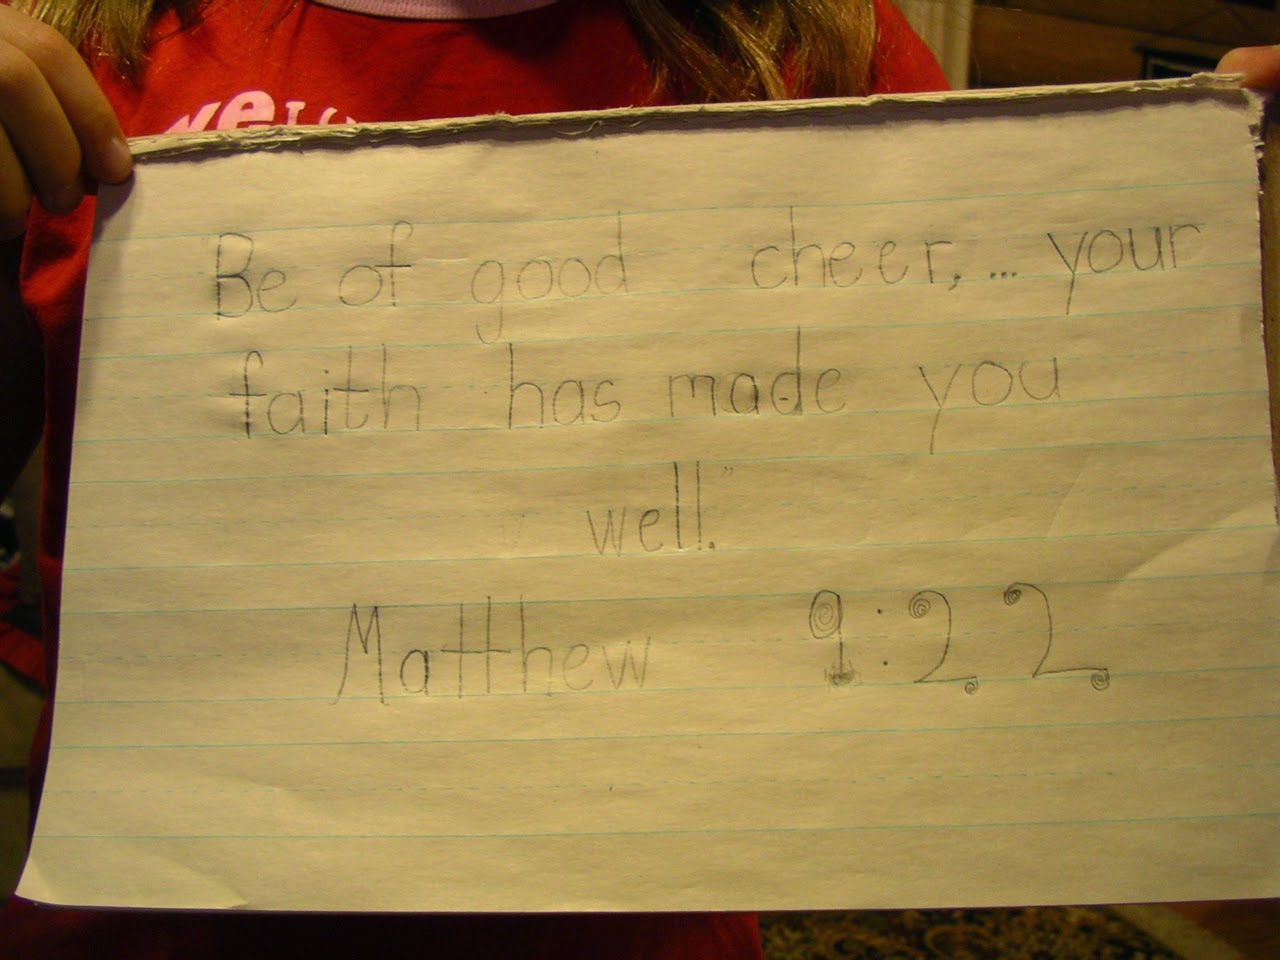 Be of good cheer, ... your
faith has made you
well."
Matthew 9:22